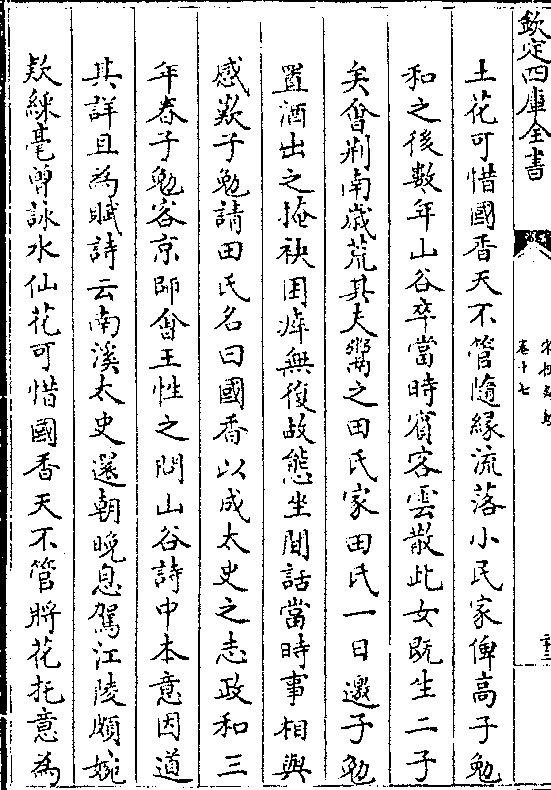 欽定四庫全書
卷十七
土花可惜國香天不管隨緣流落小民家俾高子勉
和之後數年山谷卒當時賓客雲散此女既生二子
矣㑹荆南歳荒其夫鬻之田氏家田氏一日邀子勉
置酒出之掩袂困瘁無復故態坐間話當時事相與
感歎子勉請田氏名曰國香以成太史之志政和三
年春子勉客京師㑹王性之問山谷詩中本意因道
其詳且為賦詩云南溪太史還朝晚息駕江陵頗婉
欵綵毫曽詠水仙花可惜國香天不管將花托意為